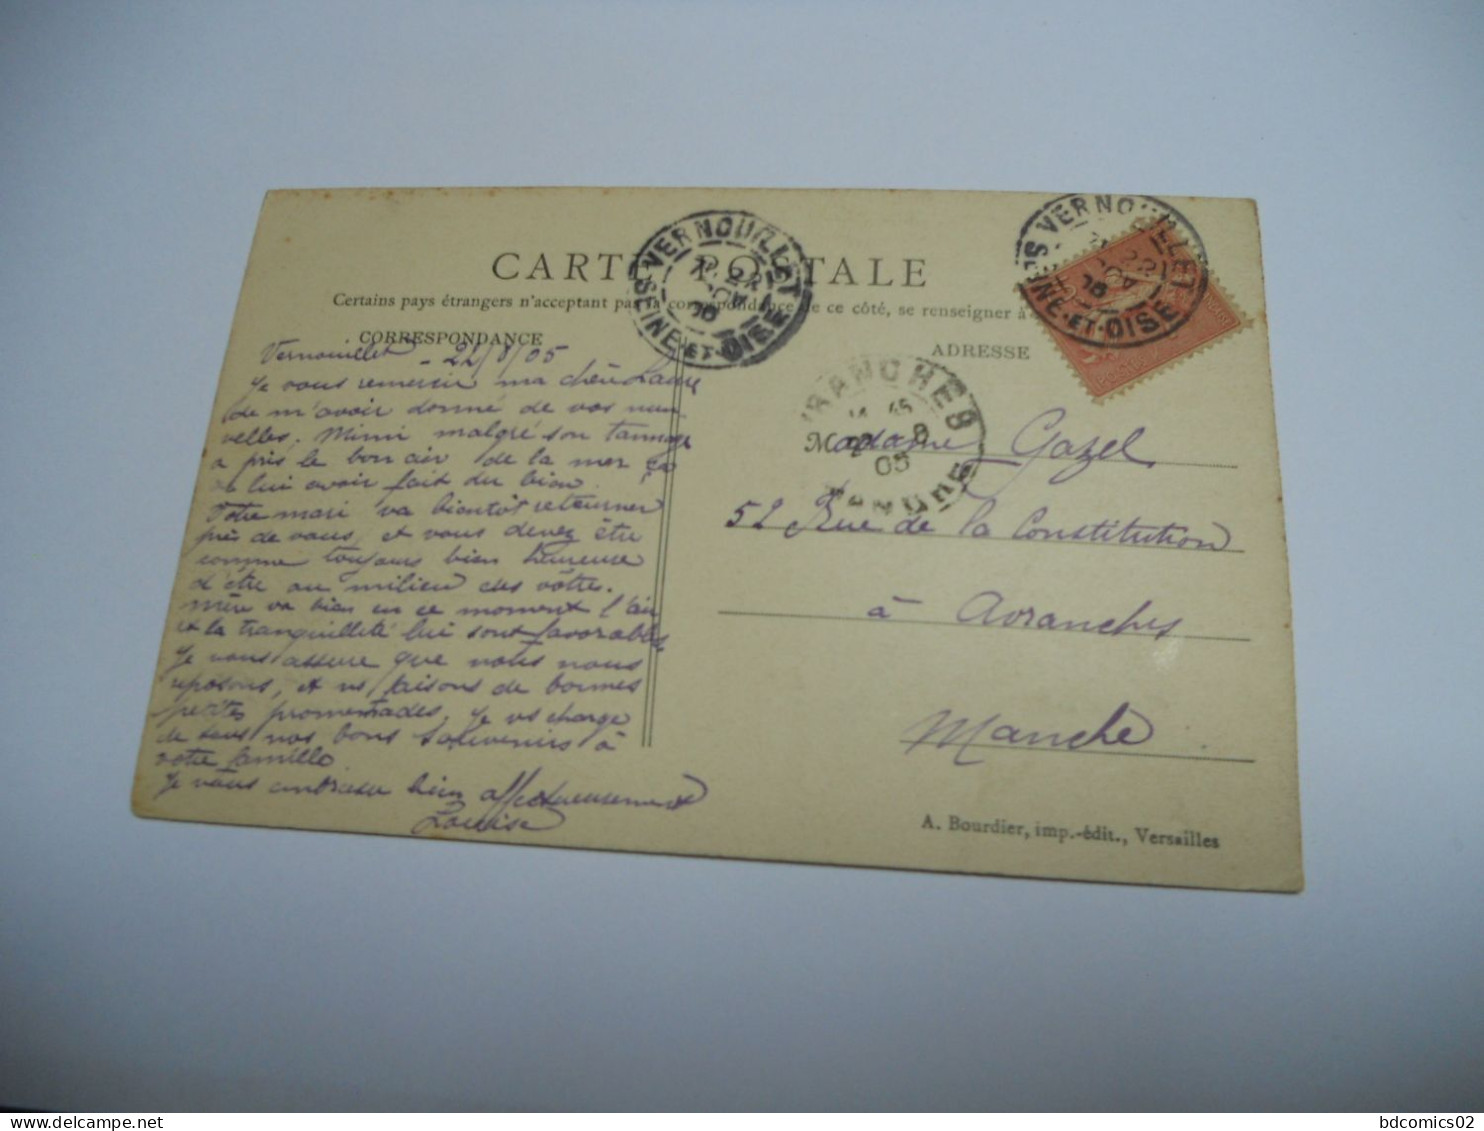 CARTE POSTALE
Certains pays étrangers n'acceptant pas la correspondance de ce côté, se renseigner à
CORRESPONDANCE
ADRESSE
VERNOUILLET
SEINE-ET-OISE
VERNOUILLET
SEINE-ET-OISE
AVRANCHES
MANCHE
05
Vernouillet - 22/8/05
Je vous remercie ma chère Laure
de m'avoir donné de vos nou-
velles, Mimi malgré son
a pris le bon air de la mer
lui avoir fait du bien.
Votre mari va bientôt retourner
près de vous, et vous devez être
comme toujours bien heureuse
d'être au milieu des vôtres.
Mère va bien en ce moment l'air
et la tranquillité lui sont favorables
Je vous assure que nous nous
reposons, et ns faisons de bonnes
petites promenades, je vs charge
de tous nos bons souvenirs à
votre famille.
Je vous embrasse bien affectueusement
Louise
Madame Gazel
52 Rue de la Constitution
à Avranches
Manche
A. Bourdier, imp.-édit., Versailles
bdcomics02